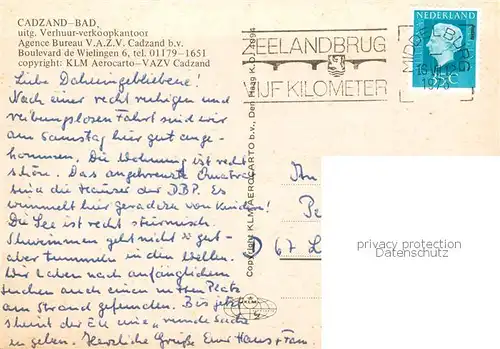 CADZAND-BAD,
uitg. Verhuur-verkoopkantoor
Agence Bureau V.A.Z.V. Cadzand b.v.
Boulevard de Wielingen 6, tel. 01179-1651
copyright: KLM Aerocarto-VAZV Cadzand
Liebe Daheimgebliebene!
Nach einer recht ruhigen und
reibungslosen Fahrt sind wir
am Samstag hier gut ange-
kommen. Die Wohnung ist recht
schön. Das angekreuzte
sind die Häuser der DBP. Es
wimmelt hier geradezu von Kindern!
Die See ist recht stürmisch.
Schwimmen geht nicht gut
aber tummeln in den Wellen.
Wir haben nach anfänglichem
Suchen auch einen netten Platz
am Strand gefunden. Bis jetzt
scheint der
zu geben. Herzliche Grüße Eure Hans + Fam.
Copyright KLM AEROCARTO b.v., Den Haag K.O. 74994
ZEELANDBRUG
VIJF KILOMETER
MIDDELBURG
1976
NEDERLAND
55c
An
D 67 L
privacy protection
Datenschutz